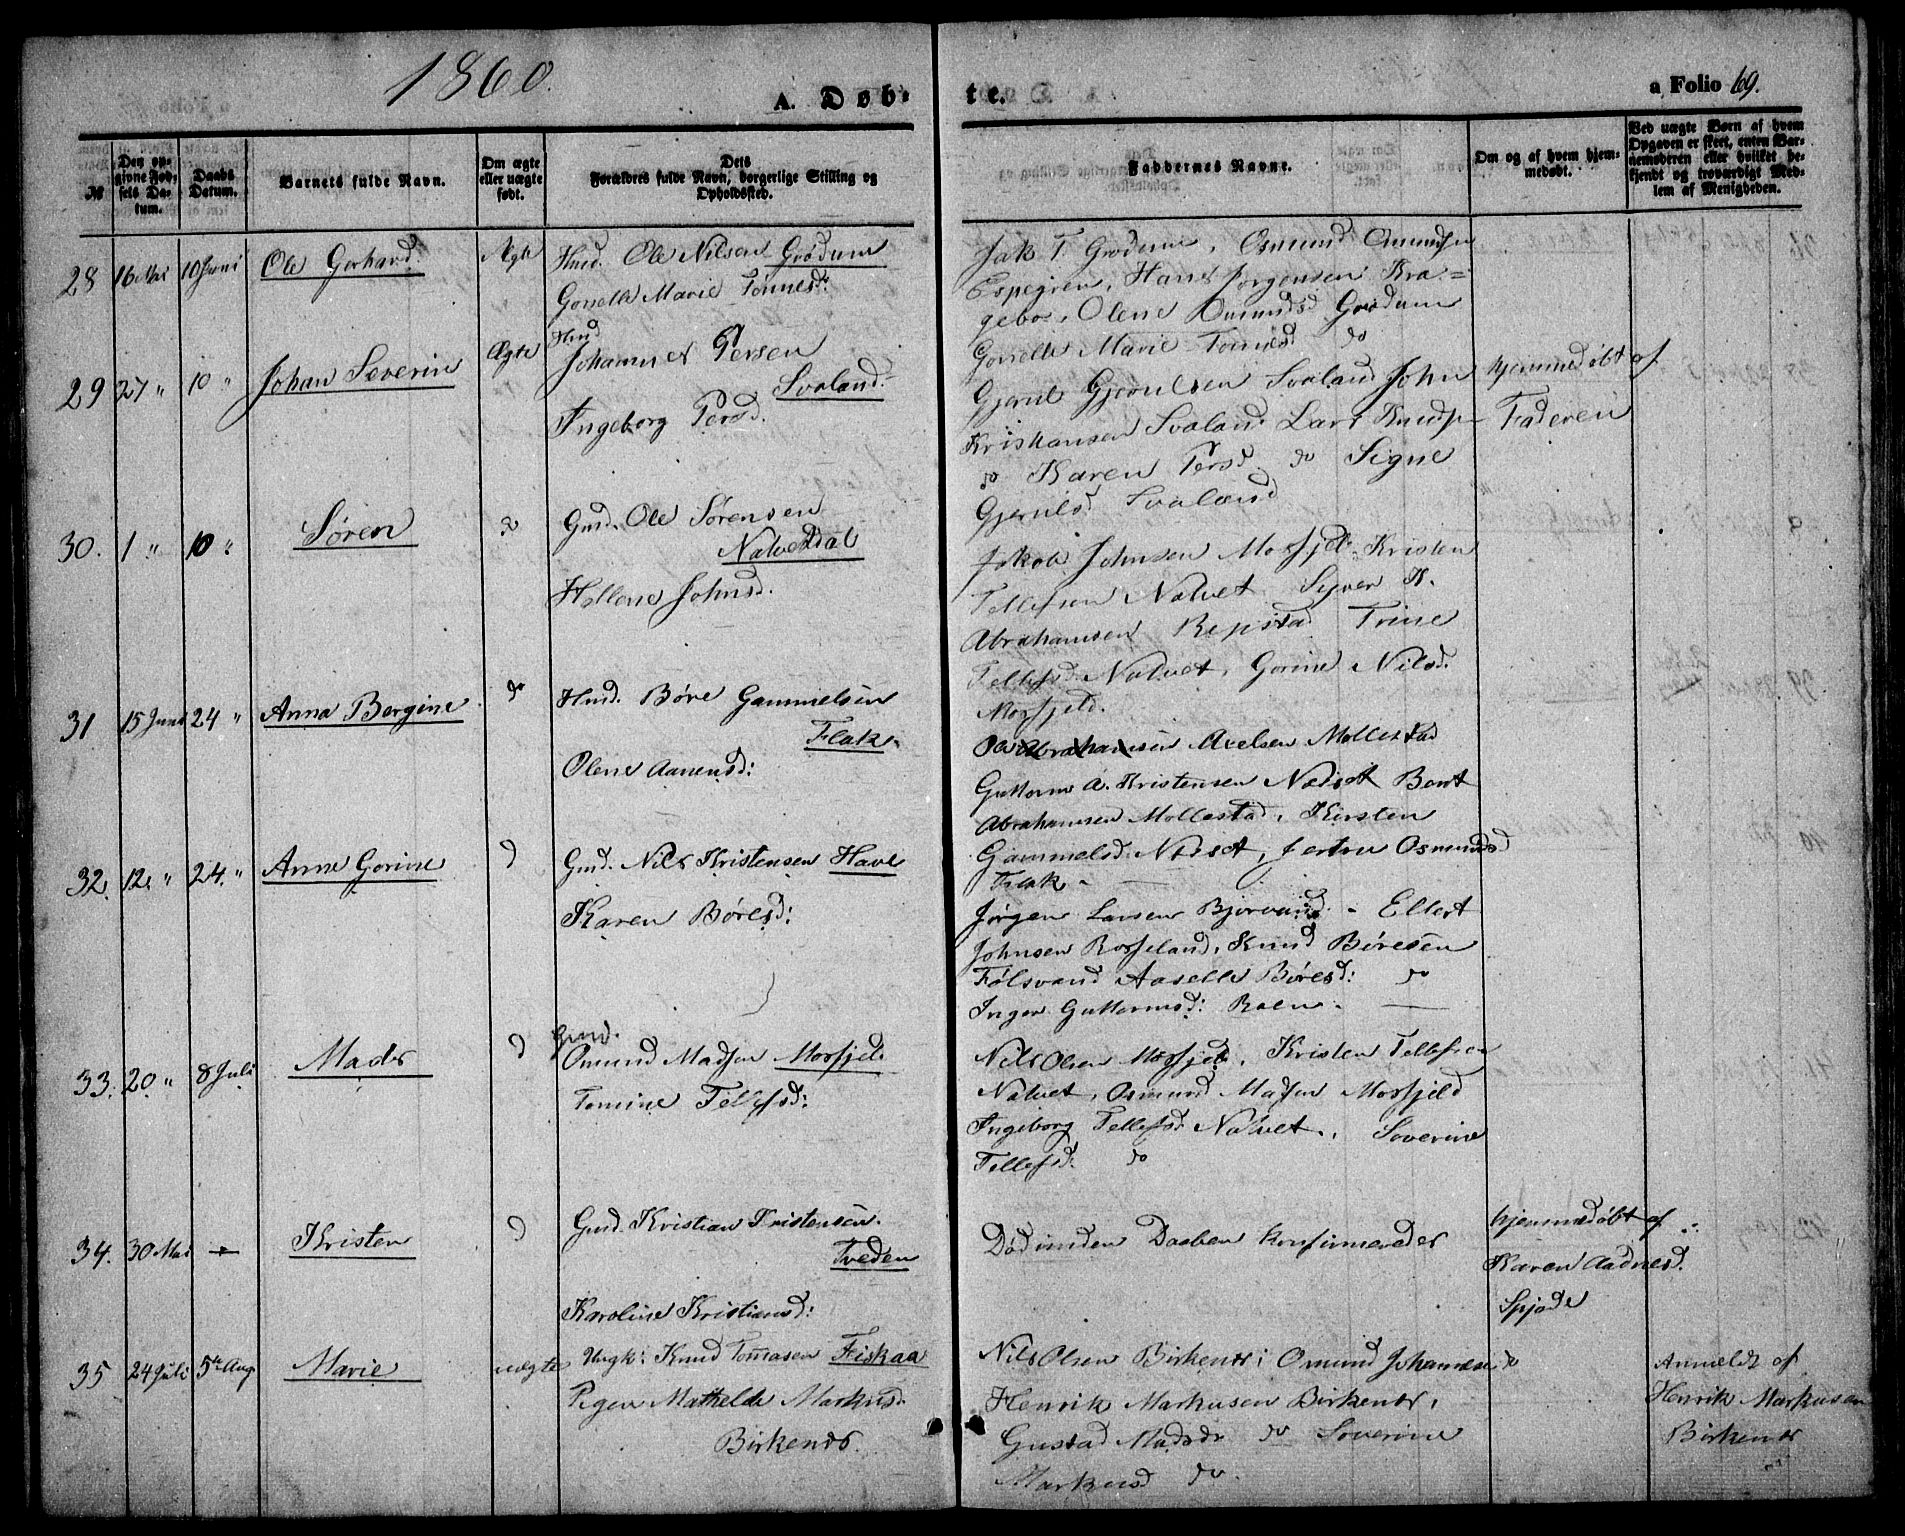 1860.
A. Døb-
te.
a Folio 69.
№
Den opgivne Fødsels Datum.
Daabs Datum.
Barnets fulde Navn.
Om ægte eller uægte født.
Dets Forældres fulde Navn, borgerlige Stilling og Opholdssted.
Faddernes Navne.
Om og af hvem hjemmedøbt.
Ved uægte Børn af hvem Opgaven er skeet, enten Barnemoderen eller hvilket bekjendt og troværdigt Medlem af Menigheden.
28 16 Mai 10 Juni Ole Gerhard Ægte Husd. Ole Nilsen Grødum
Gonelle Marie Tønnesd:
Jak T. Grødum, Osmund Osmundsen
Espegren, Hans Jørgensen Kra=
gebo, Olene Osmundsd Grødum
Gonelle Marie Tønnesd do
29 27 " 10 " Johan Severin Ægte Husd
Johannes Persen
Svaland.
Ingeborg Persd.
Gjerul Gjerulsen Svaland John
Kristiansen Svaland Lars Knuds
do Karen Persd do Signe
Gjerulsd Svaland
hjemmedøbt af
Faderen
30. 1 " 10 " Søren do Gmd. Ole Sørensen
Natvedal
Hellene Johnsd.
Jakob Johnsen Mosfjeld Kristen
Tellefsen Natvet Syver K.
Abrahamsen Repstad Trine
Tellefsd Natvet, Gorine Nilsd.
Mosfjeld.
31 15 Juni 24 " Anna Bergine do Husd. Børe Gammelsen
Flak.
Olene Aanensd:
Ole Abrahamsen Axelsen Mollestad
Guttorm A. Kristensen Nedset Bent
Abrahamsen Mollestad, Kirsten
Gammelsd Nedset, Jertru Osmundsd
Flak -
32. 12. " 24. " Anne Gorine d Gmd. Nils Kristensen Have
Karen Børesd:
Jørgen Larsen Bjorvand - Ellert
Johnsen Rosseland, Knud Børesen
Følsvand Aaselle Børesd: do
Inger Guttormsd: Roen -
33. 20. " 8 Juli Mads d Gmd.
Omund Madsen Mosfjeld
Tomine Tellefsd:
Nils Olsen Mosfjeld, Kristen Tellefsen
Natvet, Osmund Madsen Mosfjeld
Ingeborg Tellefsd Natvet, Severine
Tellefsd: do
34. 30 Mai Kristen d Gmd. Kristian Kristensen
Tveden
Karoline Kristiansd:
Død inden Daaben konfirmeredes
hjemmedøbt af
Karen Aadnesd.
35 24 Juli 5te Aug Marie uægte Ungk: Knud Tomasen Fiskaa
Pigen Mathelde Markusd.
Birkenes.
Nils Olsen Birkenes; Osmund Johannesen do
Henrik Markusen Birkenes,
Gustad Madsd do Severine
Markusd do.
Anmeldt af
Henrik Markusen
Birkenes